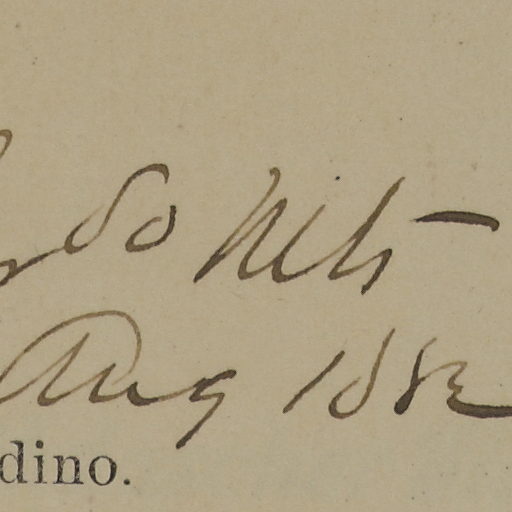 So Mts –
Aug 1882
dino.